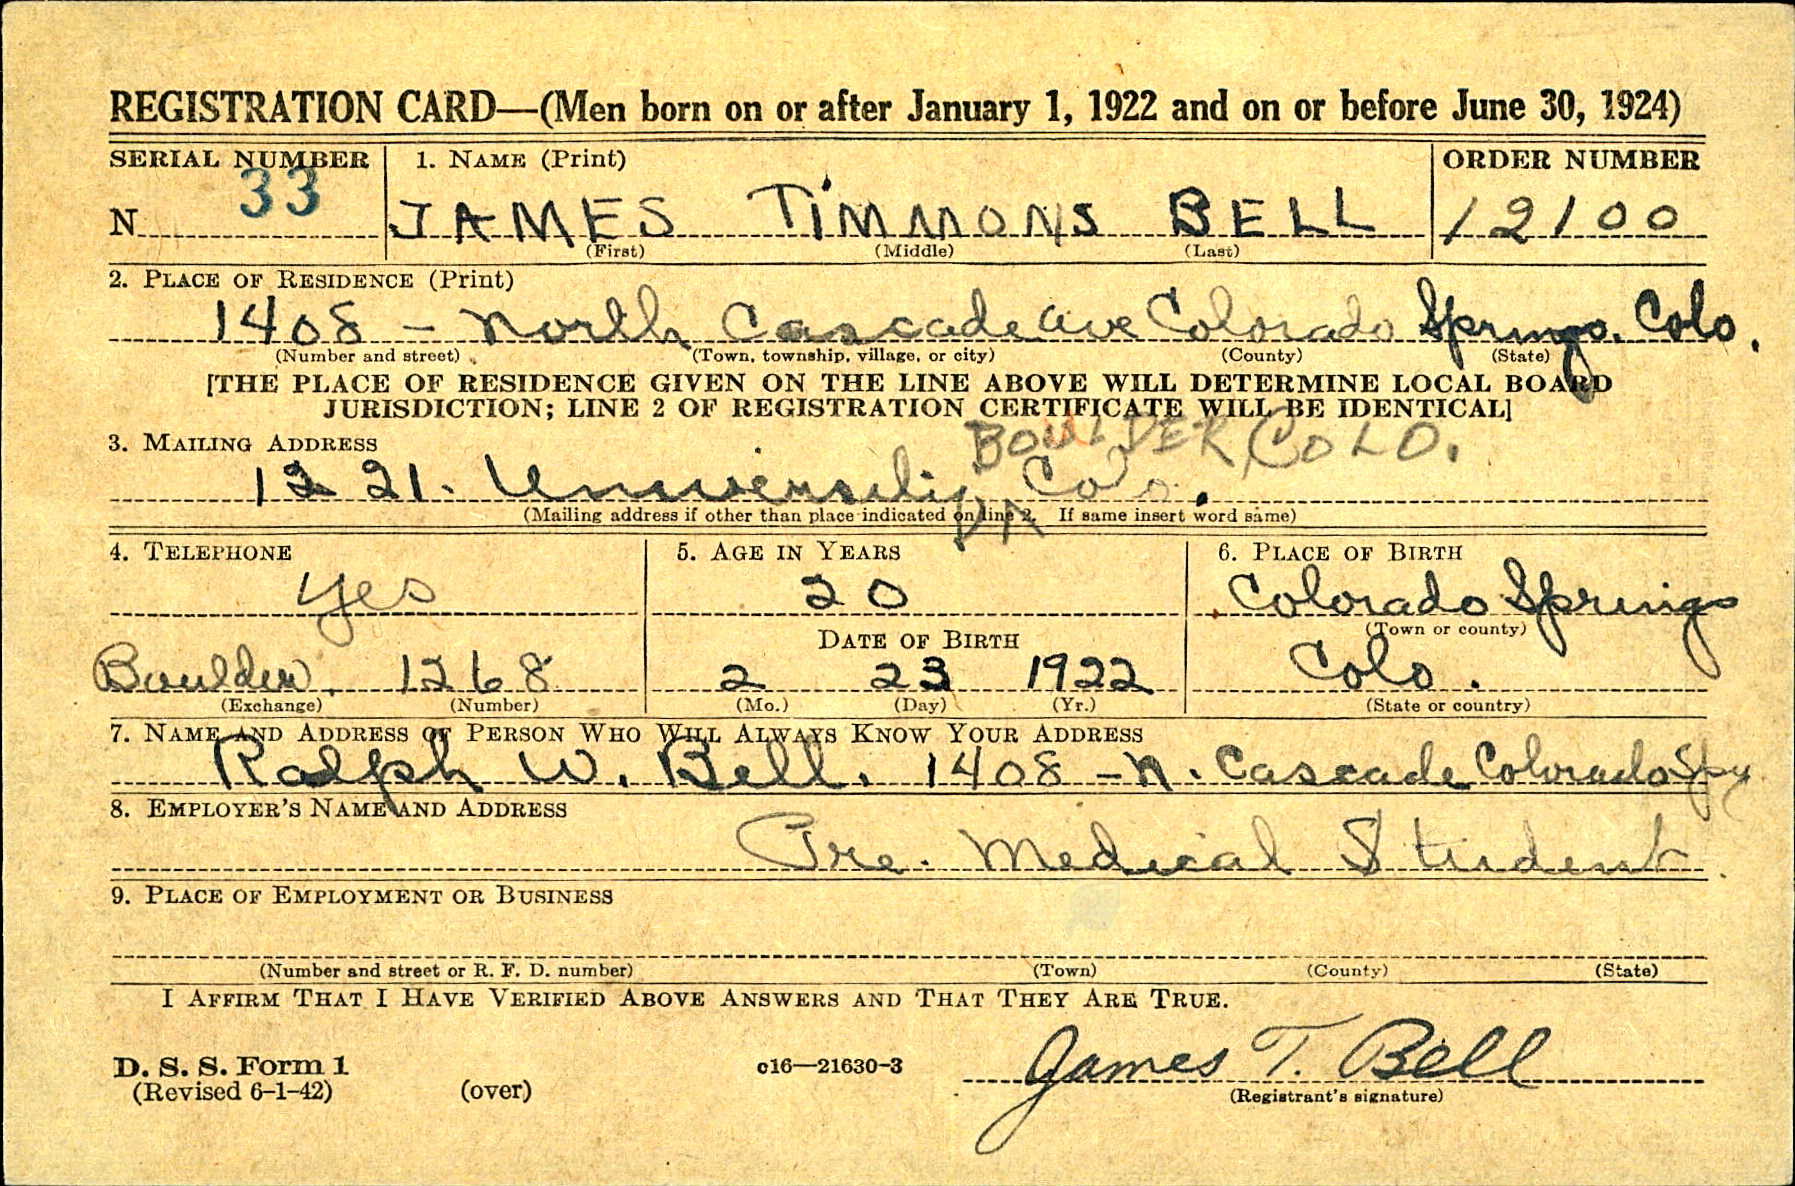 REGISTRATION CARD—(Men born on or after January 1, 1922 and on or before June 30, 1924)
SERIAL NUMBER 1. NAME (Print) ORDER NUMBER
N 33 JAMES TIMMONS BELL 12100
(First) (Middle) (Last)
2. PLACE OF RESIDENCE (Print)
1408 - North Cascade Ave Colorado Springs. Colo.
(Number and street) (Town, township, village, or city) (County) (State)
[THE PLACE OF RESIDENCE GIVEN ON THE LINE ABOVE WILL DETERMINE LOCAL BOARD
JURISDICTION; LINE 2 OF REGISTRATION CERTIFICATE WILL BE IDENTICAL]
3. MAILING ADDRESS BOULDER, COLO.
1221. University Colo.
(Mailing address if other than place indicated on line 2. If same insert word same)
4. TELEPHONE 5. AGE IN YEARS 6. PLACE OF BIRTH
Yes 20 Colorado Springs
DATE OF BIRTH (Town or county)
Boulder. 1268 2 23 1922 Colo.
(Exchange) (Number) (Mo.) (Day) (Yr.) (State or country)
7. NAME AND ADDRESS OF PERSON WHO WILL ALWAYS KNOW YOUR ADDRESS
Ralph W. Bell. 1408 - N. Cascade Colorado Spg
8. EMPLOYER'S NAME AND ADDRESS
Pre. Medical Student
9. PLACE OF EMPLOYMENT OR BUSINESS
(Number and street or R. F. D. number) (Town) (County) (State)
I AFFIRM THAT I HAVE VERIFIED ABOVE ANSWERS AND THAT THEY ARE TRUE.
D. S. S. Form 1 c16—21630-3 James T. Bell
(Revised 6-1-42) (over) (Registrant's signature)